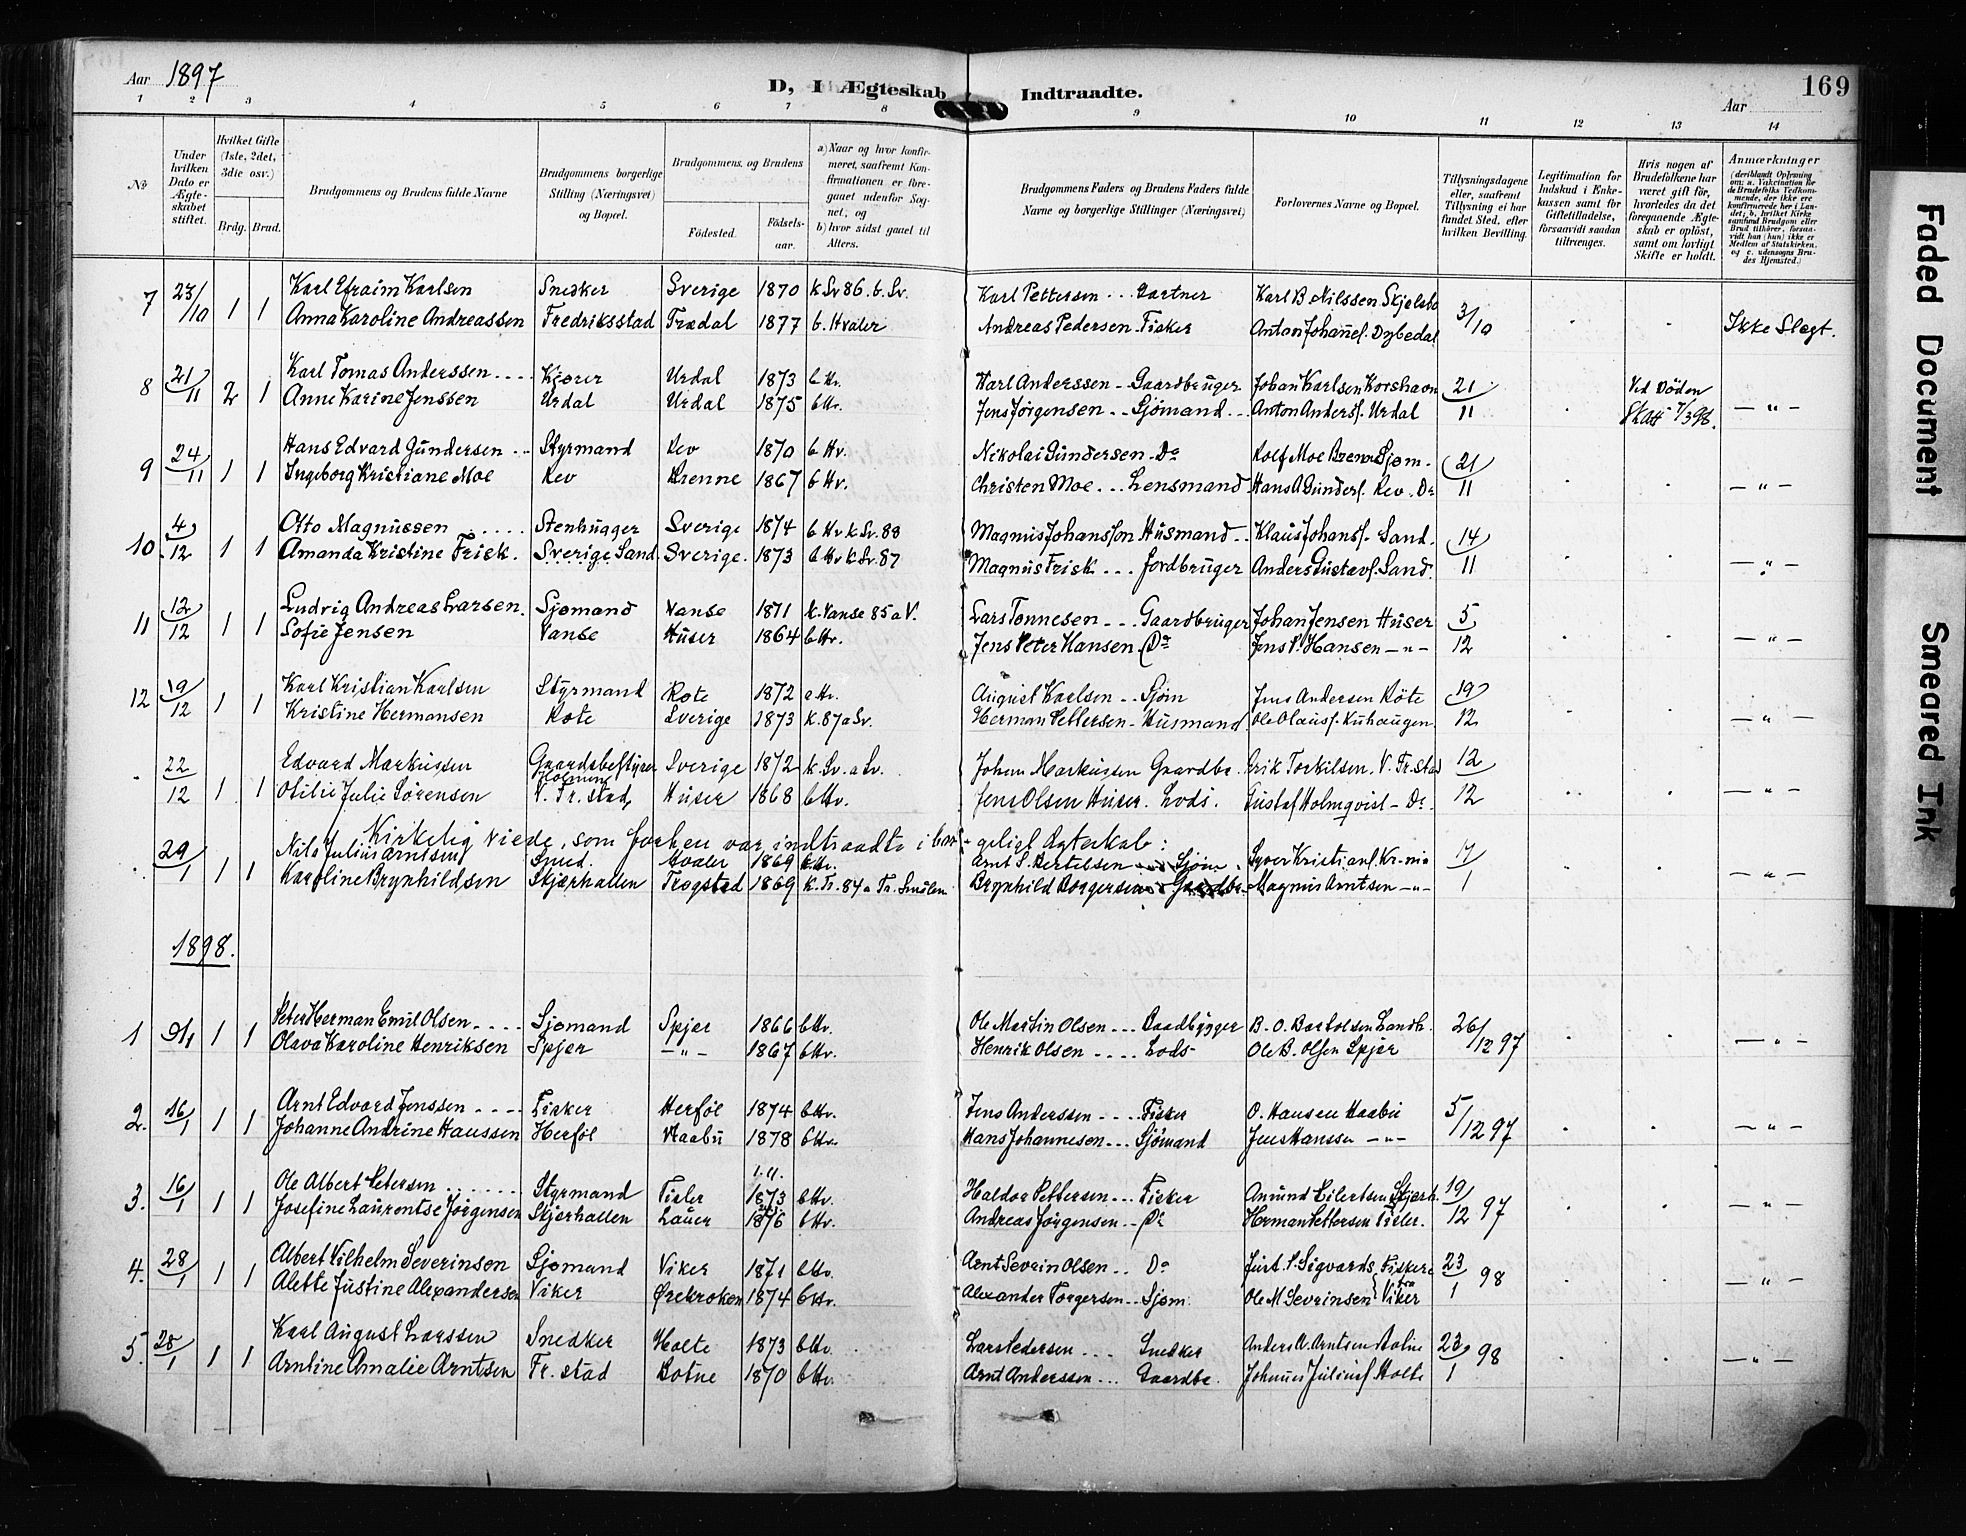 Aar 1897
D, I Ægteskab Indtraadte.
169
Aar
1 2 3 4 5 6 7 8 9 10 11 12 13 14
No
Under hvilken Dato er Ægteskabet stiftet.
Hvilket Gifte (1ste, 2det, 3die osv.)
Brdg. Brud.
Brudgommens og Brudens fulde Navne
Brudgommens borgerlige Stilling (Næringsvei) og Bopæl.
Brudgommens og Brudens
Födested. Födselsaar.
a) Naar og hvor konfirmeret, saafremt Konfirmationen er foregaaet udenfor Sognet, og
b) hvor sidst gaaet til Alters.
Brudgommens Faders og Brudens Faders fulde Navne og borgerlige Stillinger (Næringsvei)
Forlovernes Navne og Bopæl.
Tillysningsdagene eller, saafremt Tillysning ei har fundet Sted, efter hvilken Bevilling.
Legitimation for Indskud i Enkekassen samt for Giftetilladelse, forsaavidt saadan tiltrænges.
Hvis nogen af Brudefolkene har været gift før, hvorledes da det foregaaende Ægteskab er opløst, samt om lovligt Skifte er holdt.
Anmærkninger (deriblandt Oplysning om: a. Vakcination for de Brudefolks Vedkommende, der ikke ere konfirmerede her i Landet; b. hvilket Kirkesamfund Brudgom eller Brud tilhører, forsaavidt han (hun) ikke er Medlem af Statskirken, og c. udensogns Brudes Hjemsted.)
7 23/10 1 1 Karl Efraim Karlsen Snedker Sverige 1870 k Sv 86. b. Sv. Karl Pettersen --- Gartner Karl B. Nilssen Skjelsbo 3/10
Anna Karoline Andreassen Fredriksstad Trædal 1877 b. Hvaler Andreas Pedersen - Fisker Anton Johanes. Dybedal Ikke Slegt.
8 21/11 2 1 Karl Tomas Anderssen ---- Urdal 1873 b Hv. Karl Anderssen - Gaardbruger Johan Karlsen Korshavn 21/11 Ved Døden
Anne Karine Jenssen Urdal Urdal 1875 b Hv. Jens Jørgensen -- Sjömand -- Anton Anders. Urdal 7/3 98. — " —
9 24/11 1 1 Hans Edvard Gundersen -- Styrmand Rev 1870 b Hv. Nikolai Gundersen - Do Rolf Moe Brenne Sjøm. 21/11
Ingeborg Kristiane Moe Rev Brenne 1867 b Hv. Christen Moe --- Lensmand Hans A Gunders. Rev. Do — " —
10 4/12 1 1 Otto Magnussen Stenhugger Sverige 1874 b Hv k Sv. 88 Magnus Johansson Husmand -- Klaus Johans. Sand. 14/11
Amanda Kristine Frisk. Sverige Sand Sverige. 1873 b Hv k Sv. 87 Magnus Frisk --- Jordbruger Anders Gustavs. Sand. — " —
11 12/12 1 1 Ludvig Andreas Larsen. Sjømand Vanse 1871 k. Vanse 85 a V. Lars Tønnesen --- Gaardbruger Johan Jensen Huser 5/12
Sofie Jensen Vanse Huser 1864 b Hv. Jens Peter Hansen Do Jens P. Hansen — " — — " —
12 19/12 1 1 Karl Kristian Karlsen Styrmand Rote 1872 a Hv. August Karlsen -- Sjøm Jens Andersen Röte 19/12
Kristine Hermansen Rote Sverige 1873 k. 87 a Sv. Herman Pettersen - Husmand Ole Olaus. Kuhaugen — " —
22/12 1 1 Edvard Markussen Gaardsbestyrer Sverige 1872 k. Sv. a Sv. Johan Markussen Gaardbr. Erik Torkilsen. V. Fr.stad 12/12
Otilie Julie Sörensen V. Fr. stad, Huser 1868 b Hv. Jens Olsen Huser. Lods. Gustaf Holmqvist - Do. — " —
Kirkelig viede, som forhen var indtraadte i borgeligt Ægteskab:
29/1 1 1 Nils Julius Arntsen Smed. Hvaler 1869 b Hv. Arnt S. Bertelsen Sjøm. Syver Kristians. Kr-nia 17/1
Karoline Brynhildsen Skjærhallen Trøgstad 1869 k. Tr. 84 a Tr. Smålen Brynhild Borgersen Gaardbr. Magnus Arntsen — " — — " —
1898.
1 9/1 1 1 Peter Herman Emil Olsen ---- Sjømand Spjær 1866 b Hv. Ole Martin Olsen --- Baadbygger B. O. Bartolsen Landh. 26/12 97
Olava Karoline Henriksen Spjær — " — 1867 b Hv. Henrik Olsen ---- Lods - Ole B. Olsen Spjær — " —
2. 16/1 1 1 Arnt Edvard Jenssen ---- Fisker Herföl 1874 b Hv. Jens Anderssen ---- Fisker O. Hansen Haabu 5/12 97
Johanne Andrine Hanssen Herföl Haabu 1878 b Hv. Hans Johannesen --- Sjömand Jens Hanssen — " — — " —
3. 16/1 1 1 Ole Albert Petersen Styrmand Tisler 1873 b Hv. Haldor Pettersen --- Fisker Amund Eilertsen Skjærh. 19/12 97
Josefine Laurentse Jørgensen Skjærhallen Lauer 1876 b Hv. Andreas Jørgensen -- Do Herman Pettersen Tisler. — " —
4. 28/1 1 1 Albert Vilhelm Severinsen Sjømand Viker 1871 b Hv. Arnt Severin Olsen -- Do Just. S. Sigvards. Fiskere 23/1 98
Alette Justine Alexandersen Viker Ørekroken 1874 b Hv. Alexander Torgersen -- Sjøm. Ole M Sevrinsen fra Viker — " —
5. 28/1 1 1 Karl August Larssen Snedker Holte 1873 b Hv. Lars Pedersen --- Snedker Anders A. Arntsen 23/1 98
Arntine Amalie Arntsen Fr. stad Botne 1870 b Hv. Arnt Anderssen --- Gaardbr. Johannes Julius. Holte — " —
Faded Document
Smeared Ink